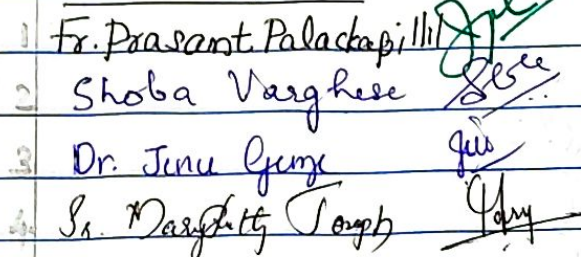 1 Fr. Prasant Palackapillil
2 Shoba Varghese
3 Dr. Jinu George
4 Sr. Marykutty Joseph